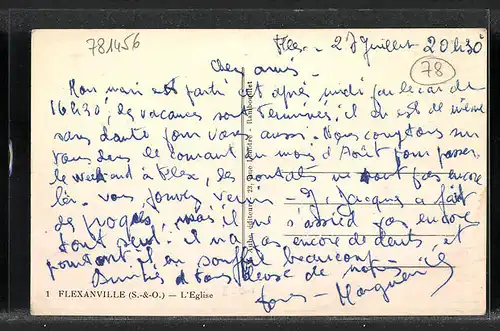 781456
Flex - 27 Juillet 20h30
78
Chers amis -
Mon mari est parti cet après midi par le car de
16h30, les vacances sont terminées, il en est de même
sans doute pour vous aussi. Nous comptons sur
vous dans le courant du mois d'Août pour passer
le weekend à Flex, les sont pas encore
là. vous pouvez venir - J. Jacques a fait
des progrès, mais il ne s'assied pas encore
tout seul. il n'a pas encore de dents, et
pourtant il en souffre beaucoup - il
Amitiés à tous de nous
tous - Marguerite
éditeur, 23, Rue
1 FLEXANVILLE (S.-&-O.) — L'Eglise